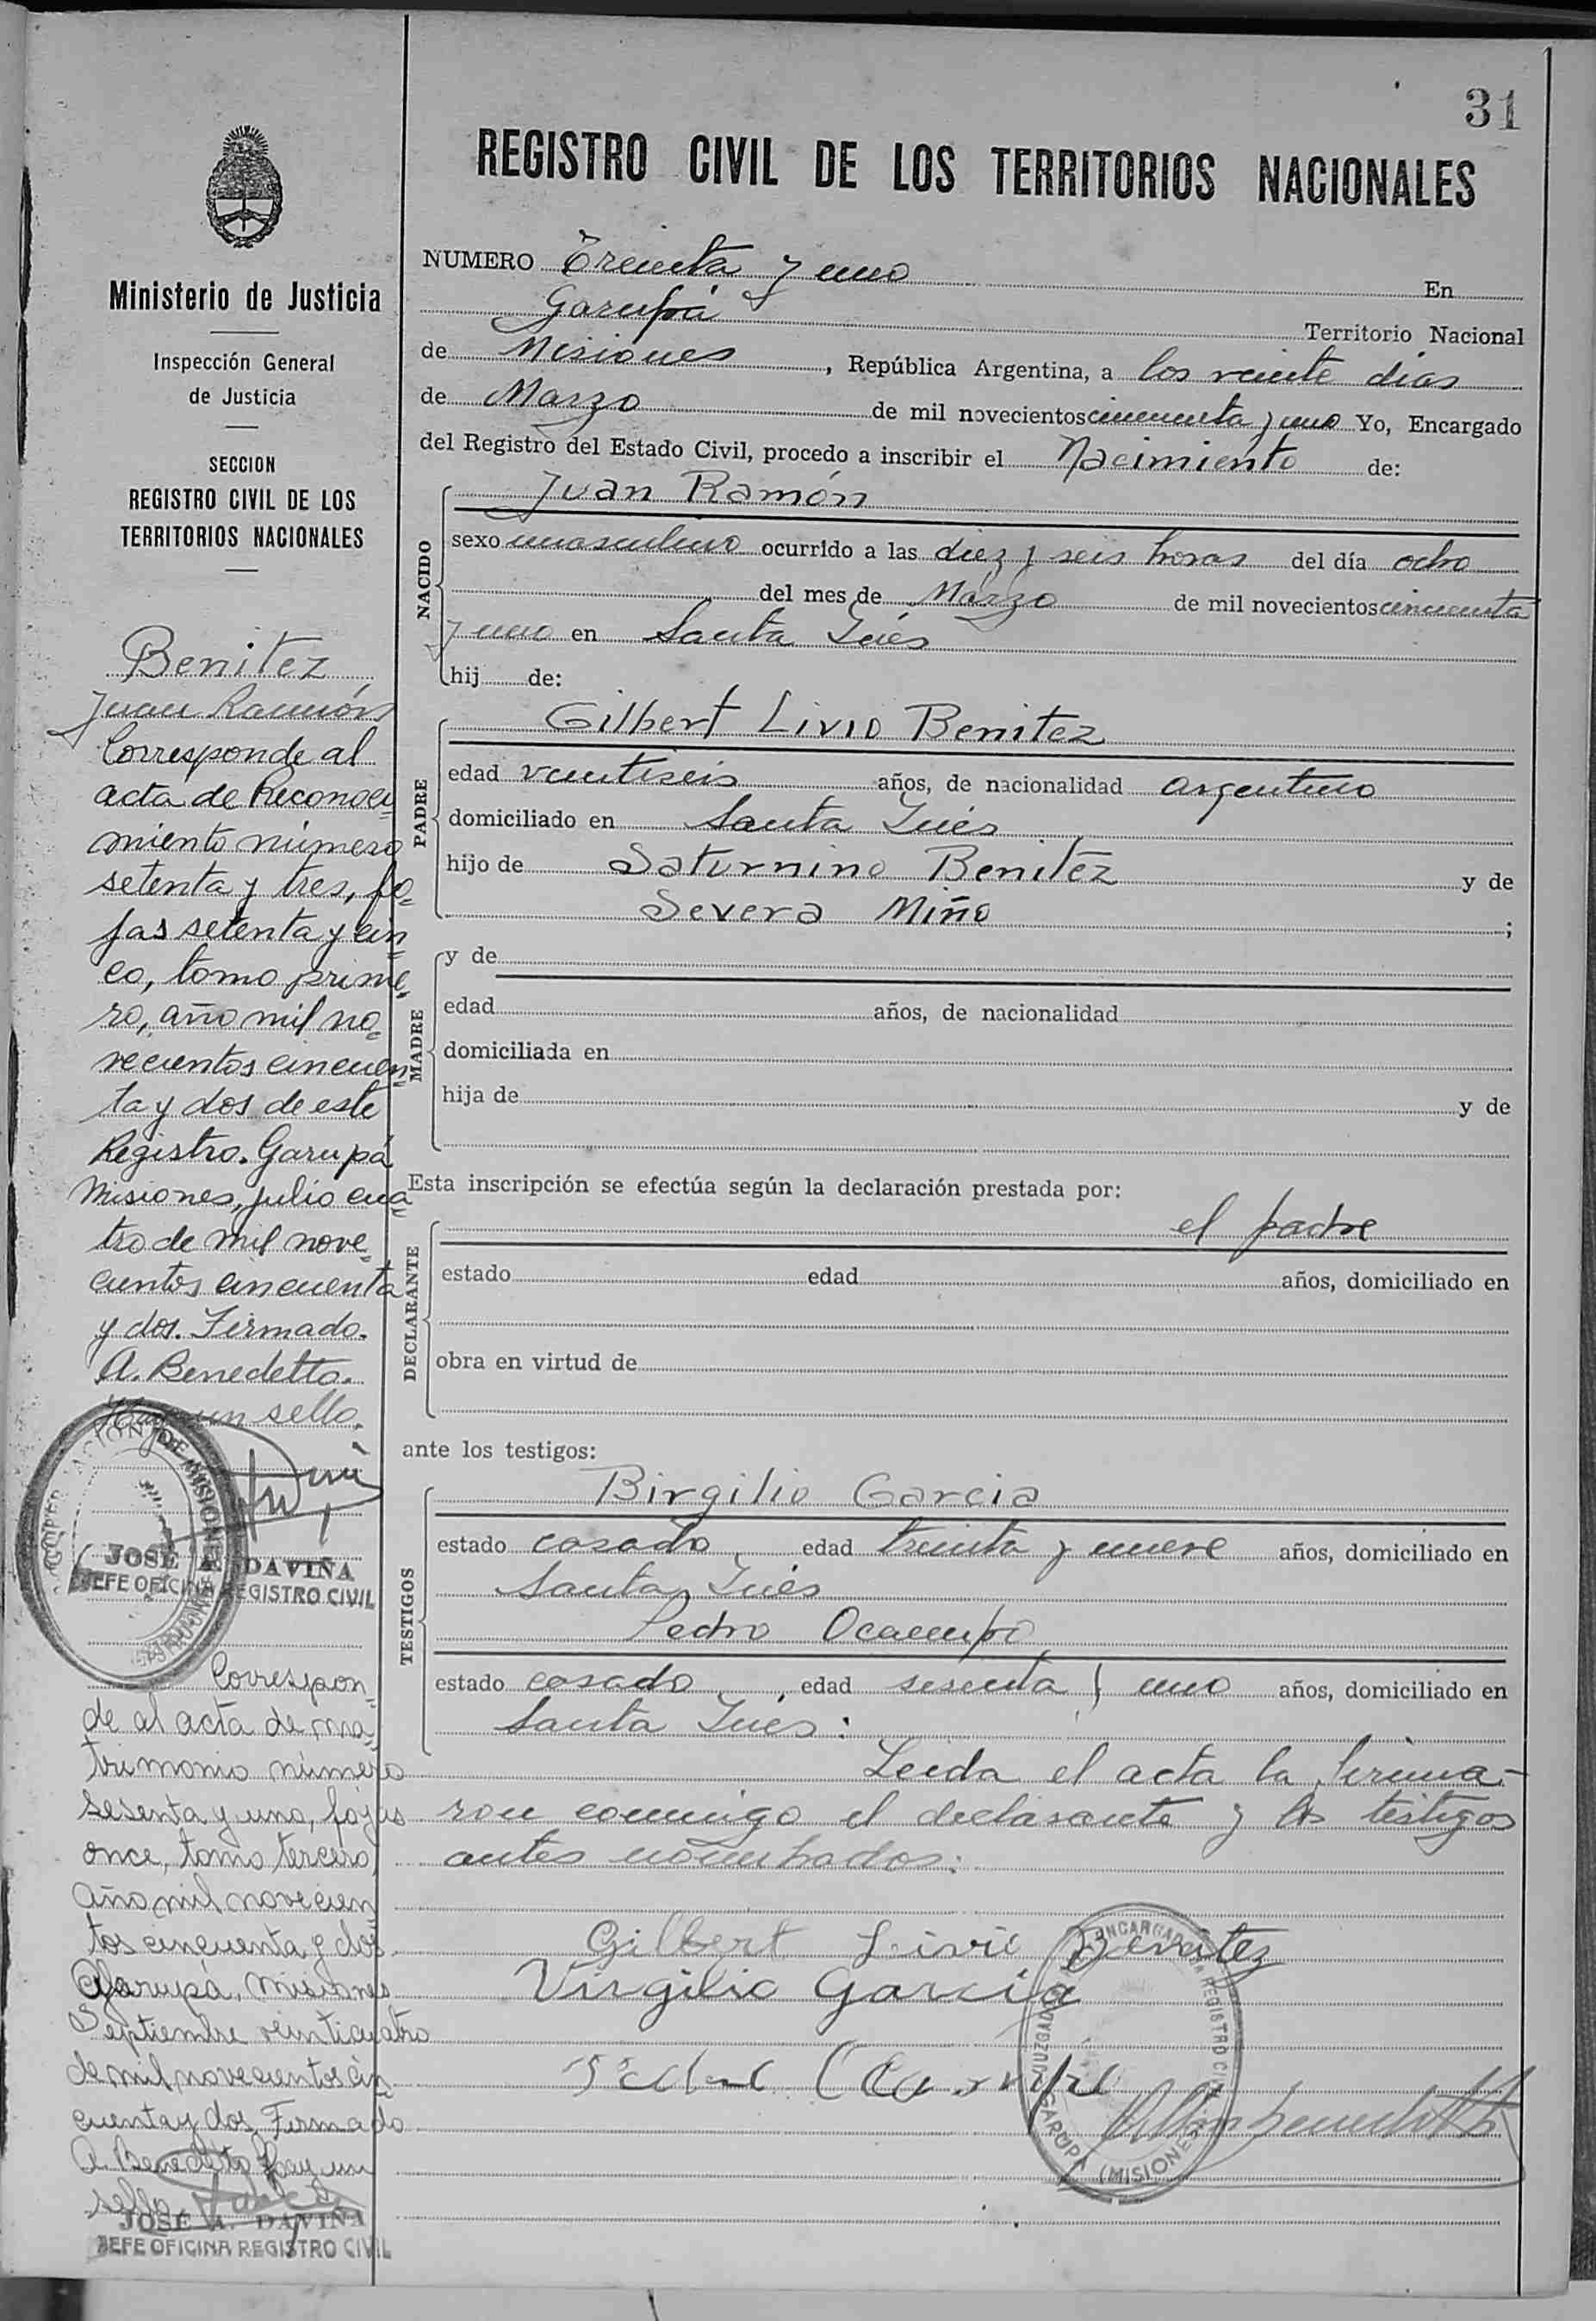 31
REGISTRO CIVIL DE LOS TERRITORIOS NACIONALES
Ministerio de Justicia
Inspección General
de Justicia
SECCION
REGISTRO CIVIL DE LOS
TERRITORIOS NACIONALES
Benitez
Juan Ramón
Corresponde al
acta de Reconoci
miento número
setenta y tres, fo
jas setenta y cin
co, tomo prime
ro, año mil no
vecientos cincuen
ta y dos de este
Registro. Garupá
Misiones, julio cua
tro de mil nove
cientos cincuenta
y dos. Firmado.
A. Benedetto.
Hay un sello.
JOSE A. DAVIÑA
JEFE OFICINA REGISTRO CIVIL
Correspon
de al acta de ma
trimonio número
sesenta y uno, fojas
once, tomo tercero
año mil novecien
tos cincuenta y dos
Garupá, Misiones
Septiembre veinticuatro
de mil novecientos cin
cuenta y dos Firmado
A. Benedetto Hay un
sello
JOSE A. DAVIÑA
JEFE OFICINA REGISTRO CIVIL
NUMERO Treinta y uno En
Garupá Territorio Nacional
de Misiones, República Argentina, a los veinte días
de Marzo de mil novecientos cincuenta y uno Yo, Encargado
del Registro del Estado Civil, procedo a inscribir el Nacimiento de:
NACIDO
Juan Ramón
sexo masculino ocurrido a las diez y seis horas del día ocho
del mes de Marzo de mil novecientos cincuenta
y uno en Santa Inés
hij de:
PADRE
Gilbert Livio Benitez
edad veintiseis años, de nacionalidad argentino
domiciliado en Santa Inés
hijo de Saturnino Benitez y de
Severa Miño ;
MADRE
y de
edad años, de nacionalidad
domiciliada en
hija de y de
Esta inscripción se efectúa según la declaración prestada por:
DECLARANTE
el padre
estado edad años, domiciliado en
obra en virtud de
ante los testigos:
TESTIGOS
Birgilio Garcia
estado casado edad treinta y nueve años, domiciliado en
Santa Inés
Pedro Ocampo
estado casado, edad sesenta y uno años, domiciliado en
Santa Ines:
Leida el acta la firma-
ron conmigo el declarante y los testigos
antes nombrados:
Gilbert Livio Benitez
Virgilio Garcia
ENCARGADO REGISTRO CIVIL
JUZGADO
GARUPA (MISIONES)